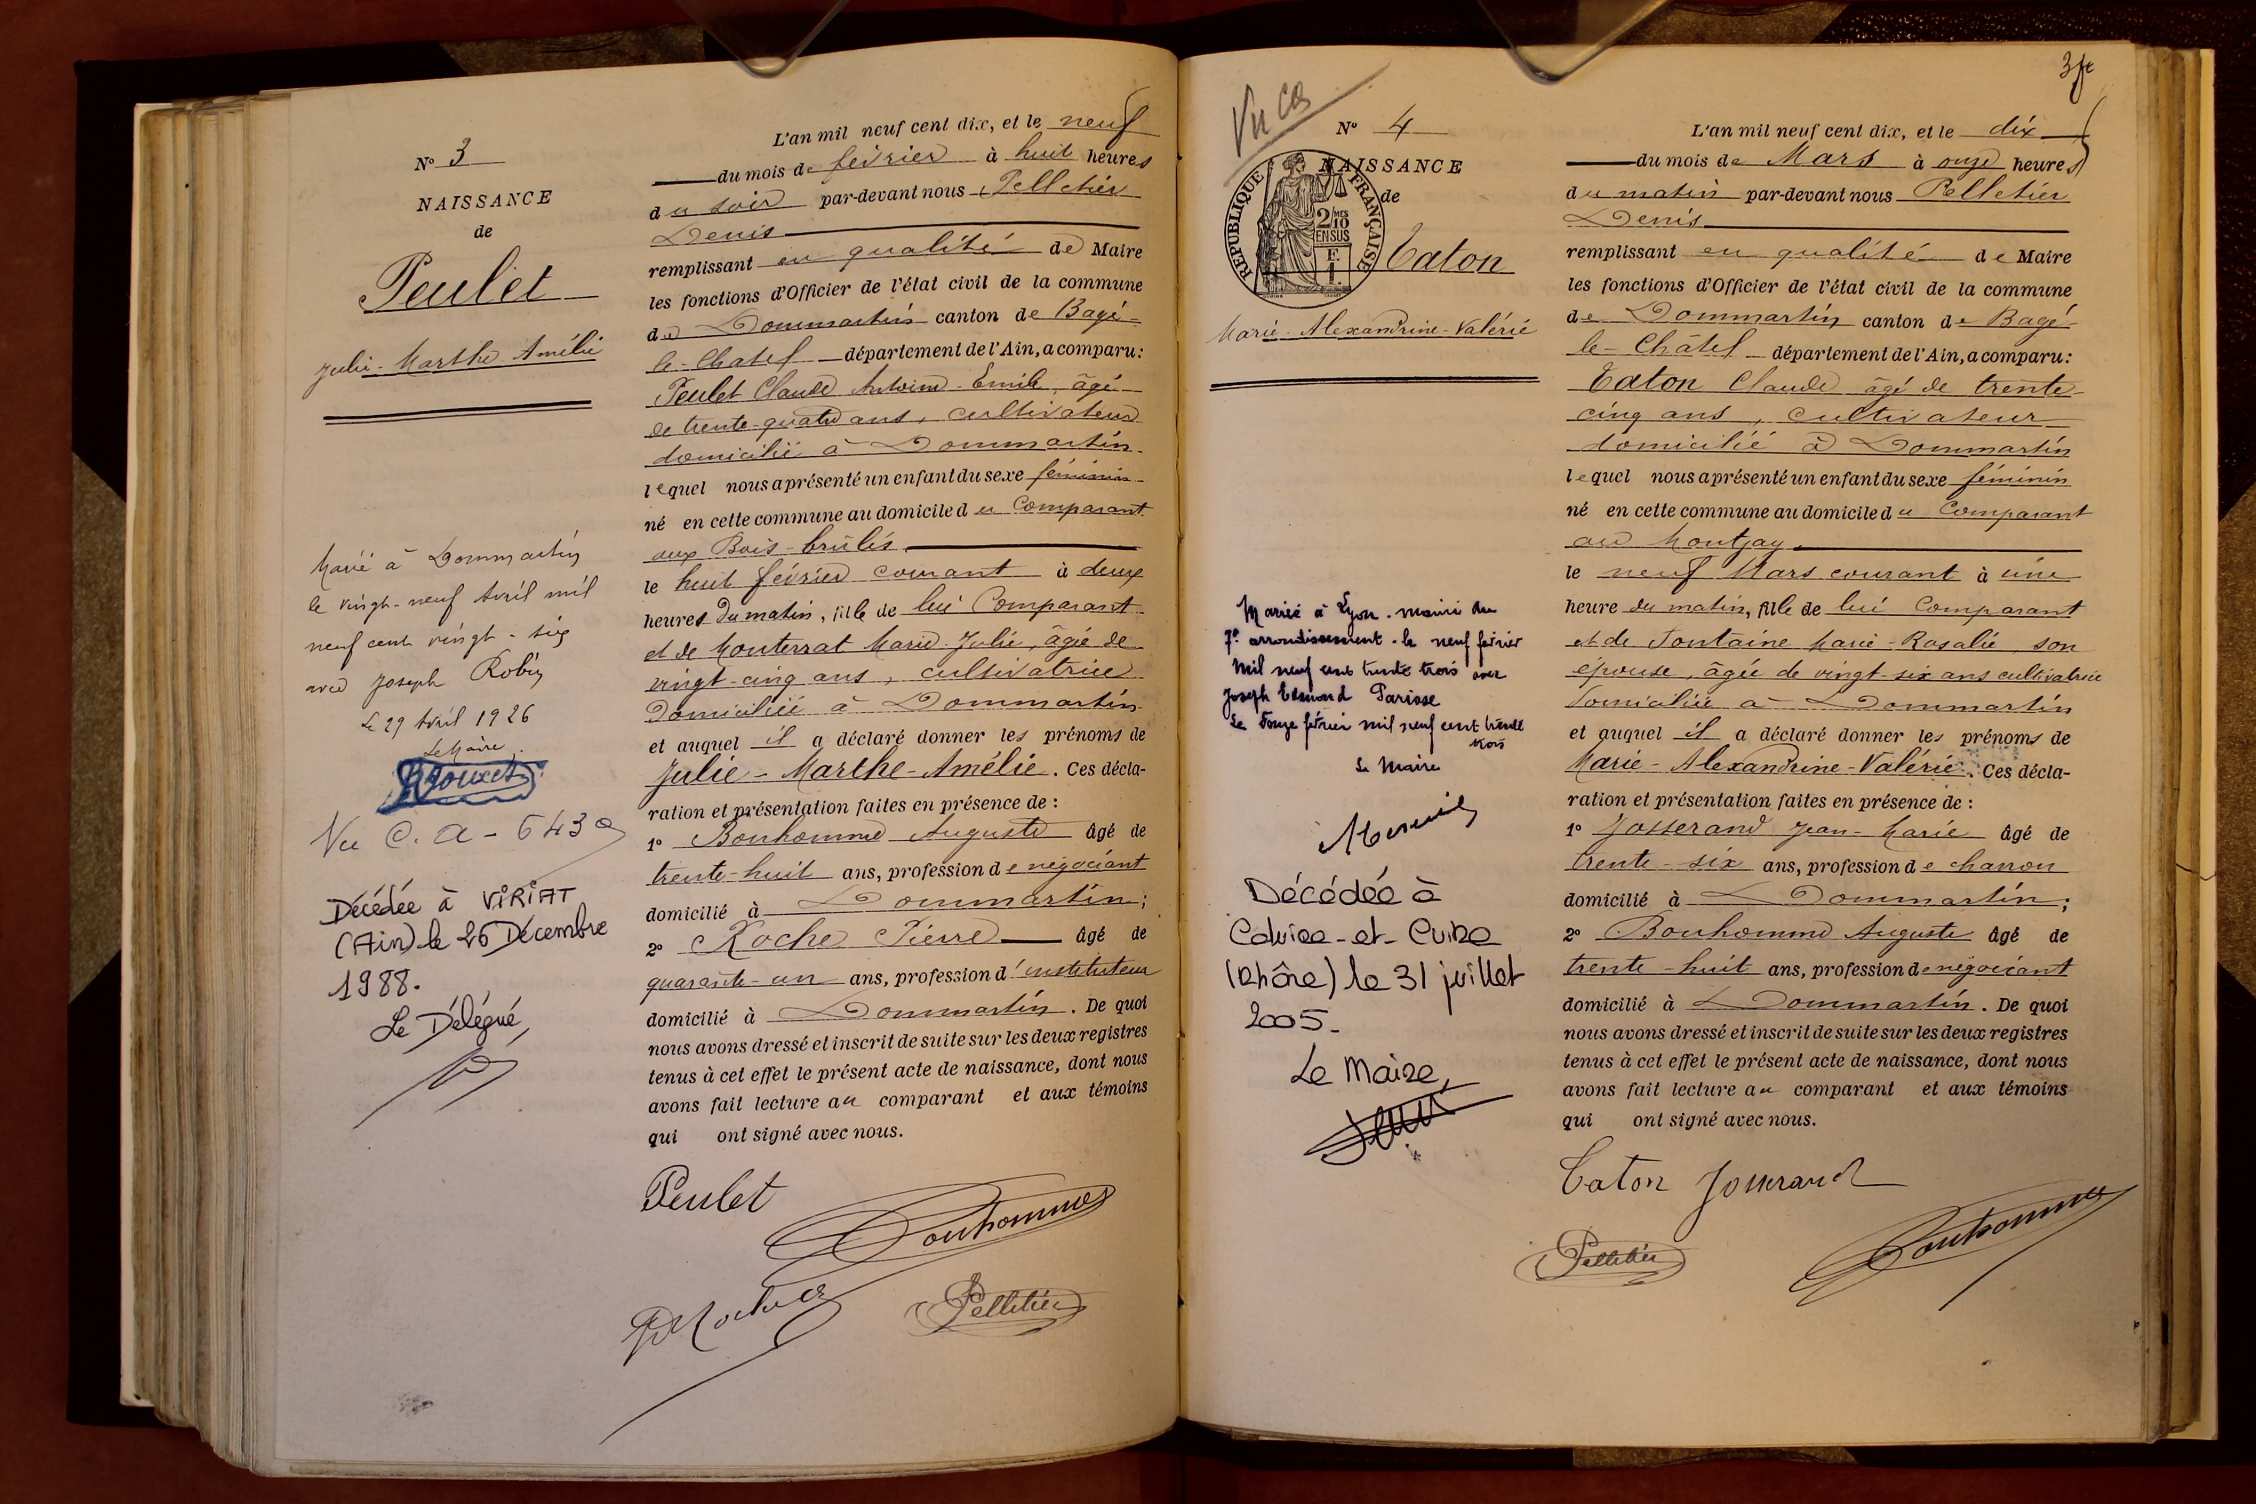 N° 3
NAISSANCE
de
Peulet
Julie-Marthe Amélie
Marié à Dommartin
le vingt-neuf Avril mil
neuf cent vingt-six
avec Joseph Robin
Le 29 Avril 1926
Le Maire
Vu C. A -
Décédée à VIRIAT
(Ain) le 26 Décembre
1988.
Le Délégué,
L'an mil neuf cent dix, et le neuf
du mois de février à huit heures
du soir par-devant nous Pelletier
Denis
remplissant en qualité de Maire
les fonctions d'Officier de l'état civil de la commune
de Dommartin canton de Bagé-
le-Chatel département de l'Ain, a comparu:
Peulet Claude Antoine-Emile, âgé
de trente-quatre ans, cultivateur
domicilié à Dommartin
lequel nous a présenté un enfant du sexe féminin
né en cette commune au domicile du Comparant
aux Bois-brûlés
le huit février courant à deux
heures du matin, fille de lui Comparant
et de Monterrat Marie-Julie, âgée de
vingt-cinq ans, cultivatrice
domiciliée à Dommartin
et auquel il a déclaré donner les prénoms de
Julie-Marthe-Amélie. Ces décla-
ration et présentation faites en présence de :
1° Bonhomme Auguste âgé de
trente-huit ans, profession de négociant
domicilié à Dommartin;
2° Roche Pierre âgé de
quarante-un ans, profession d'instituteur
domicilié à Dommartin. De quoi
nous avons dressé et inscrit de suite sur les deux registres
tenus à cet effet le présent acte de naissance, dont nous
avons fait lecture au comparant et aux témoins
qui ont signé avec nous.
Peulet
Bonhomme
P Roche
Pelletier
Vu ca
N° 4
NAISSANCE
de
RÉPUBLIQUE FRANÇAISE
2/10MES
EN SUS
F.
1.
Caton
Marie-Alexandrine-Valérie
Mariée à Lyon. mairie du
7e arrondissement. le neuf février
mil neuf cent trente trois avec
Joseph Edmond Parisse
Le douze février mil neuf cent trente
trois
Le Maire
Décédée à
Caluire-et-Cuire
(Rhône) le 31 juillet
2005-
Le Maire,
L'an mil neuf cent dix, et le dix
du mois de Mars à onze heures
du matin par-devant nous Pelletier
Denis
remplissant en qualité de Maire
les fonctions d'Officier de l'état civil de la commune
de Dommartin canton de Bagé-
le-Châtel département de l'Ain, a comparu:
Caton Claude âgé de trente-
cinq ans, cultivateur
domicilié à Dommartin
lequel nous a présenté un enfant du sexe féminin
né en cette commune au domicile du Comparant
au Montjay.
le neuf Mars courant à une
heure du matin, fille de lui Comparant
et de Fontaine Marie-Rosalie, son
épouse, âgée de vingt-six ans cultivatrice
domiciliée à Dommartin
et auquel il a déclaré donner les prénoms de
Marie-Alexandrine-Valérie. Ces décla-
ration et présentation faites en présence de :
1° Josserand Jean-Marie âgé de
trente-six ans, profession de charron
domicilié à Dommartin;
2° Bonhomme Auguste âgé de
trente-huit ans, profession de négociant
domicilié à Dommartin. De quoi
nous avons dressé et inscrit de suite sur les deux registres
tenus à cet effet le présent acte de naissance, dont nous
avons fait lecture au comparant et aux témoins
qui ont signé avec nous.
Caton Josserand
Pelletier
Bonhomme